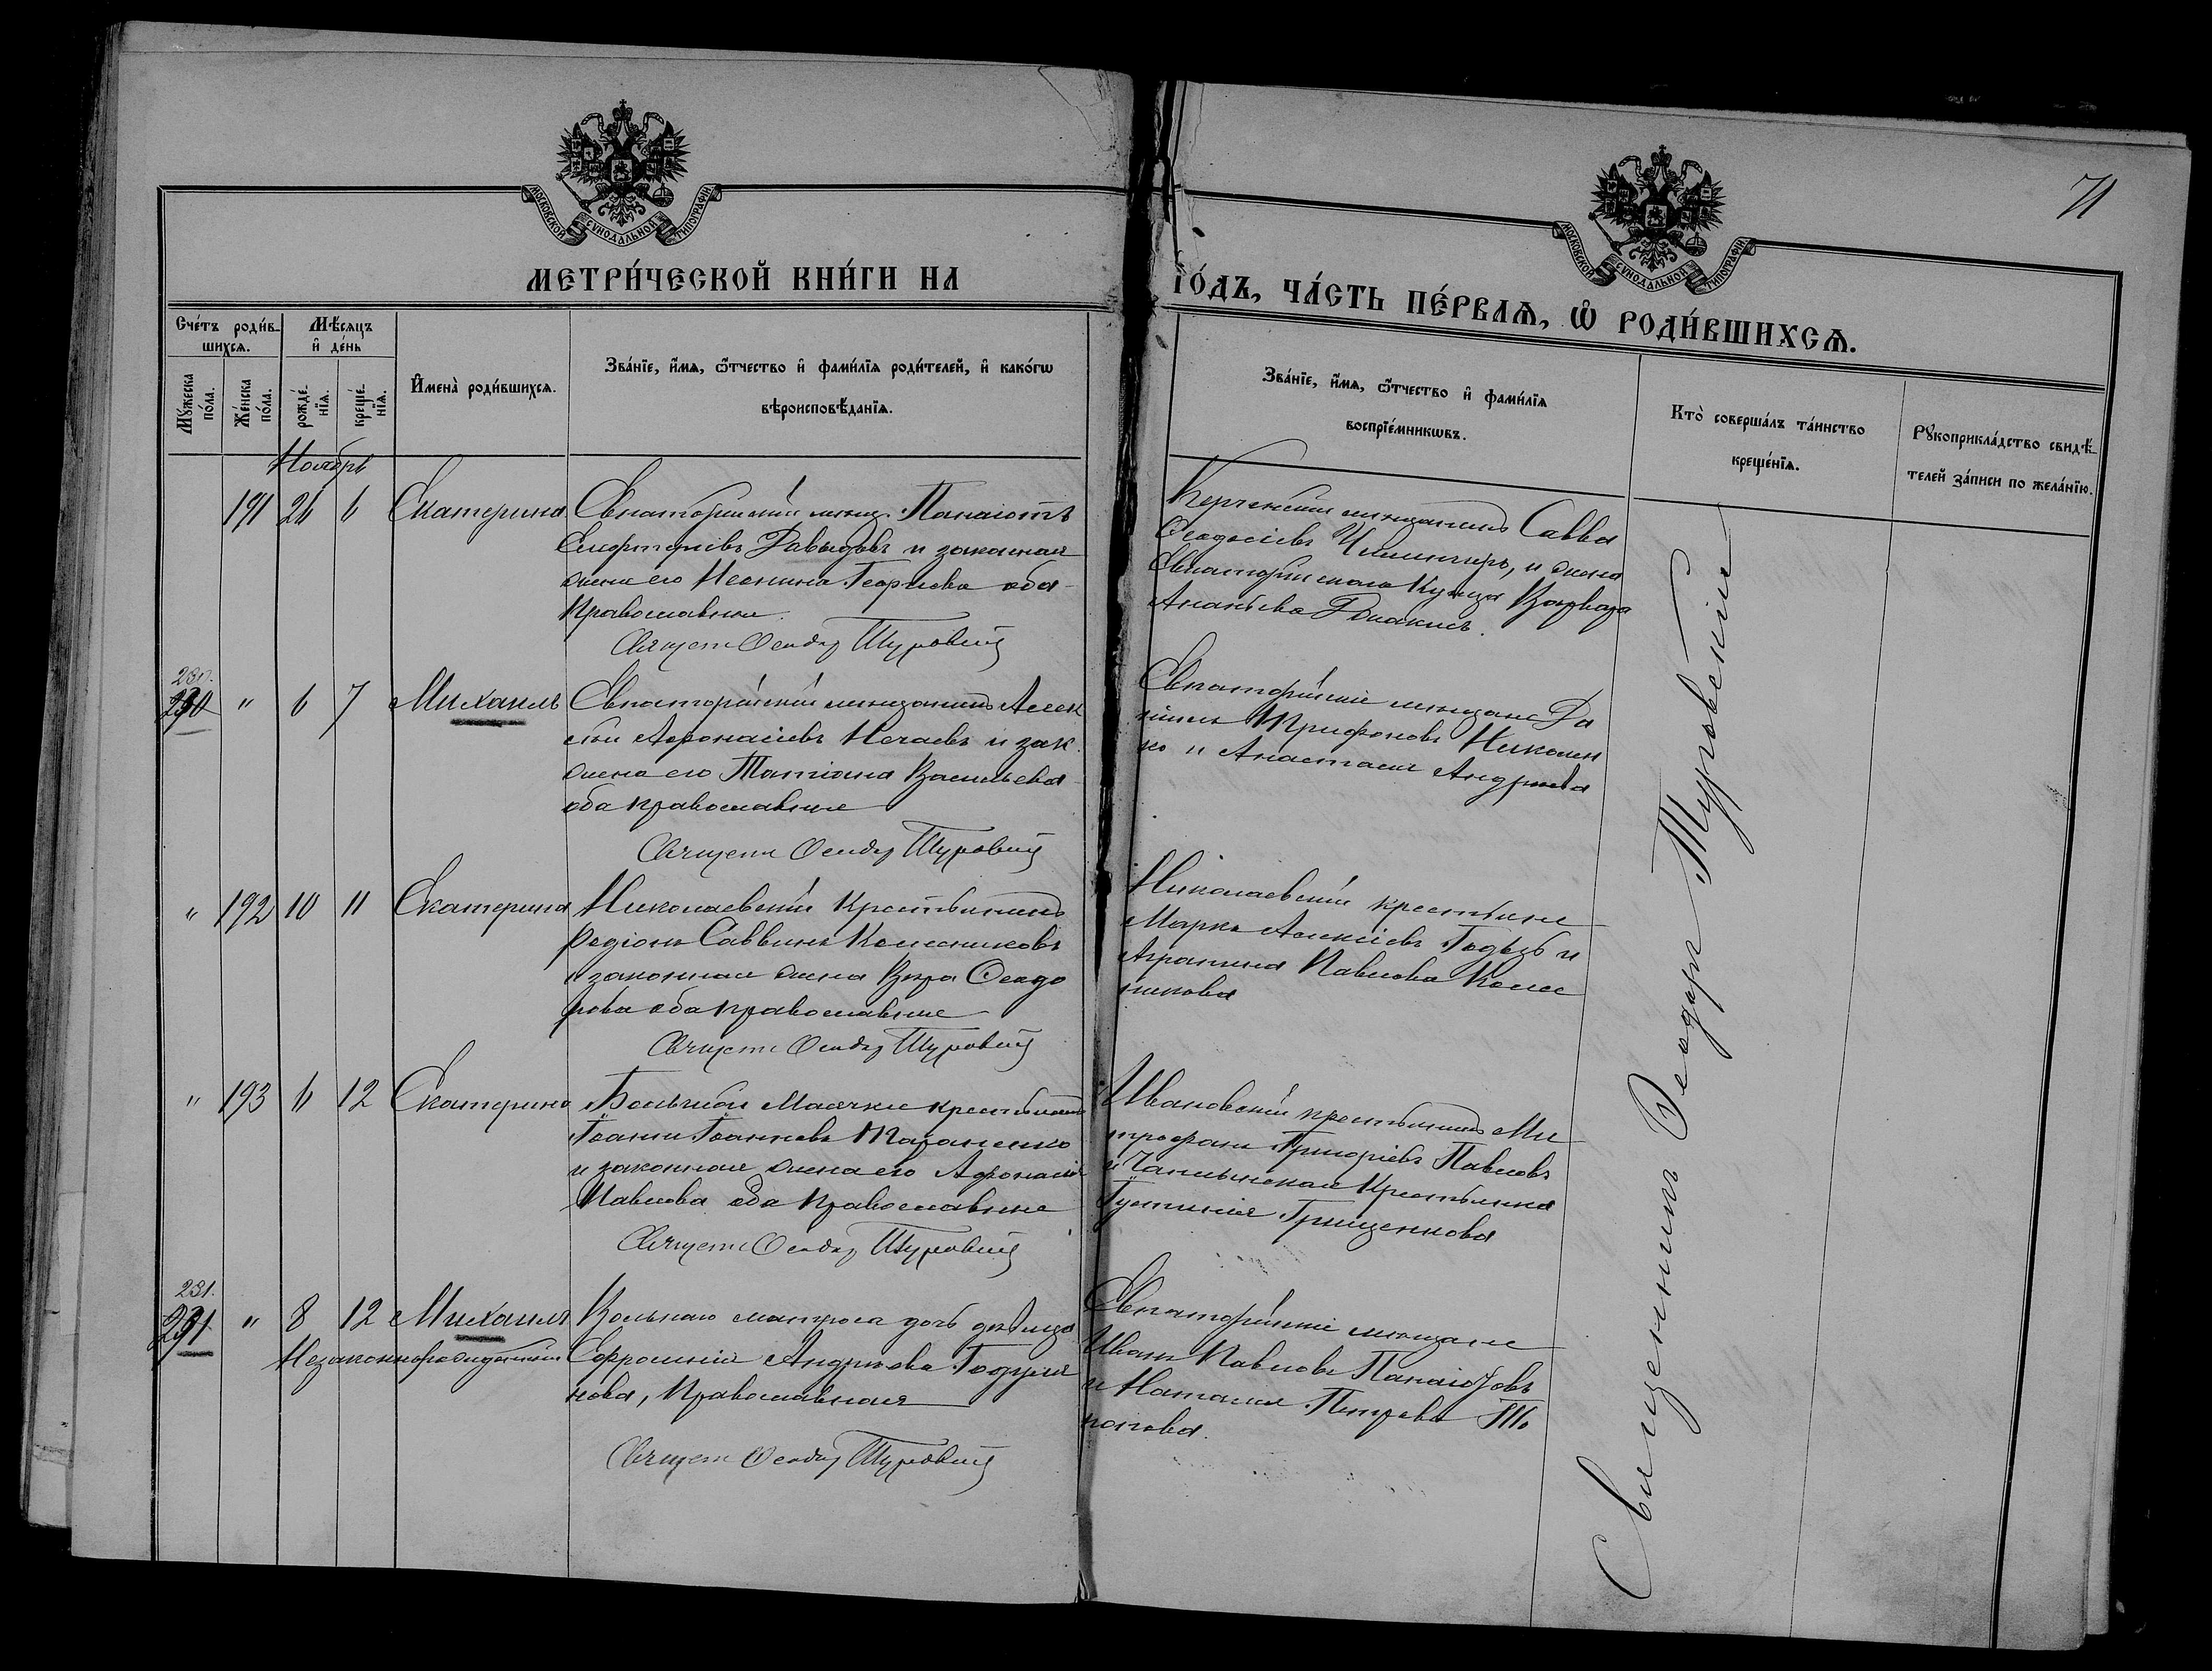 71
МОСКОВСКОЙ СѴНОДАЛЬНОЙ ТИПОГРАФІИ
МОСКОВСКОЙ СѴНОДАЛЬНОЙ ТИПОГРАФІИ
МЕТРИ́ЧЕСКОЙ КНИ́ГИ НА
ГО́ДЪ, ЧА́СТЬ ПЕ́РВАѦ, Ѽ РОДИ́ВШИХСѦ.
Сче́тъ роди́в-
шихсѧ.
Мѣ́сяцъ
и҆ де́нь
Мꙋ́жеска
по́ла.
Же́нска
по́ла.
рожде́-
нїѧ.
креще́-
нїѧ.
И҆мена̀ роди́вшихсѧ.
Зва́нїе, и҆́мѧ, ѻ҆́тчество и҆ фами́лїѧ роди́телей, и҆ како́гѡ
вѣроисповѣ́данїѧ.
Зва́нїе, и҆́мѧ, ѻ҆́тчество и҆ фами́лїѧ
воспрїе́мникѡвъ.
Кто̀ соверша́лъ та́инство
креще́нїѧ.
Рꙋкоприкла́дство свидѣ́-
телей за́писи по жела́нїю.
Ноябрь
191 26 6 Екатерина
Евпаторійскій мѣщ. Панаіотъ
Давыдовъ и законная
жена его Георгіева оба
Православные.
Священ. Ѳеодоръ Туровскій
Керченскій мѣщанинъ Савва
Ѳеодосіевъ и жена
Евпаторійскаго Купца Варвара
Ананьева
230.
230 " 6 7 Михаилъ
Евпаторійскій мѣщанинъ Алек
сѣй Аѳанасіевъ Нечаевъ и зак.
жена его Татіана Васильева
оба православные
Священ. Ѳеодоръ Туровскій
Евпаторійскіе мѣщане Да
ніилъ Трифоновъ Николен
ко и Анастасія Андреева
" 192 10 11 Екатерина
Николаевскій Крестьянинъ
Родіонъ Саввинъ Колесниковъ
и законная жена Вѣра Ѳеодо
рова оба православные
Священ. Ѳеодоръ Туровскій
Николаевскіи крестьяне
Маркъ Алексіевъ и
Агрипина Павлова Колес
никова
" 193 6 12 Екатерина
Маячки крестьянинъ
Іоаннъ Іоанновъ Тараненко
и законная жена его Афонасія
Павлова оба Православные
Священ. Ѳеодоръ Туровскій
Ивановскій крестьянинъ Ми
трофанъ Григорьевъ Павловъ
и Крестьянка
Іустинія Грищенкова
231.
231 " 8 12 Михаилъ
Незаконнорожденный
Вольнаго матроса дочь дѣвица
Ефросинія Андреева Годуля
нова, Православная
Священ. Ѳеодоръ Туровскій
Евпаторійскіе мѣщане
Иванъ Павловъ Панаіотовъ
и Наталія Петрова
Священникъ Ѳеодоръ Туровскій